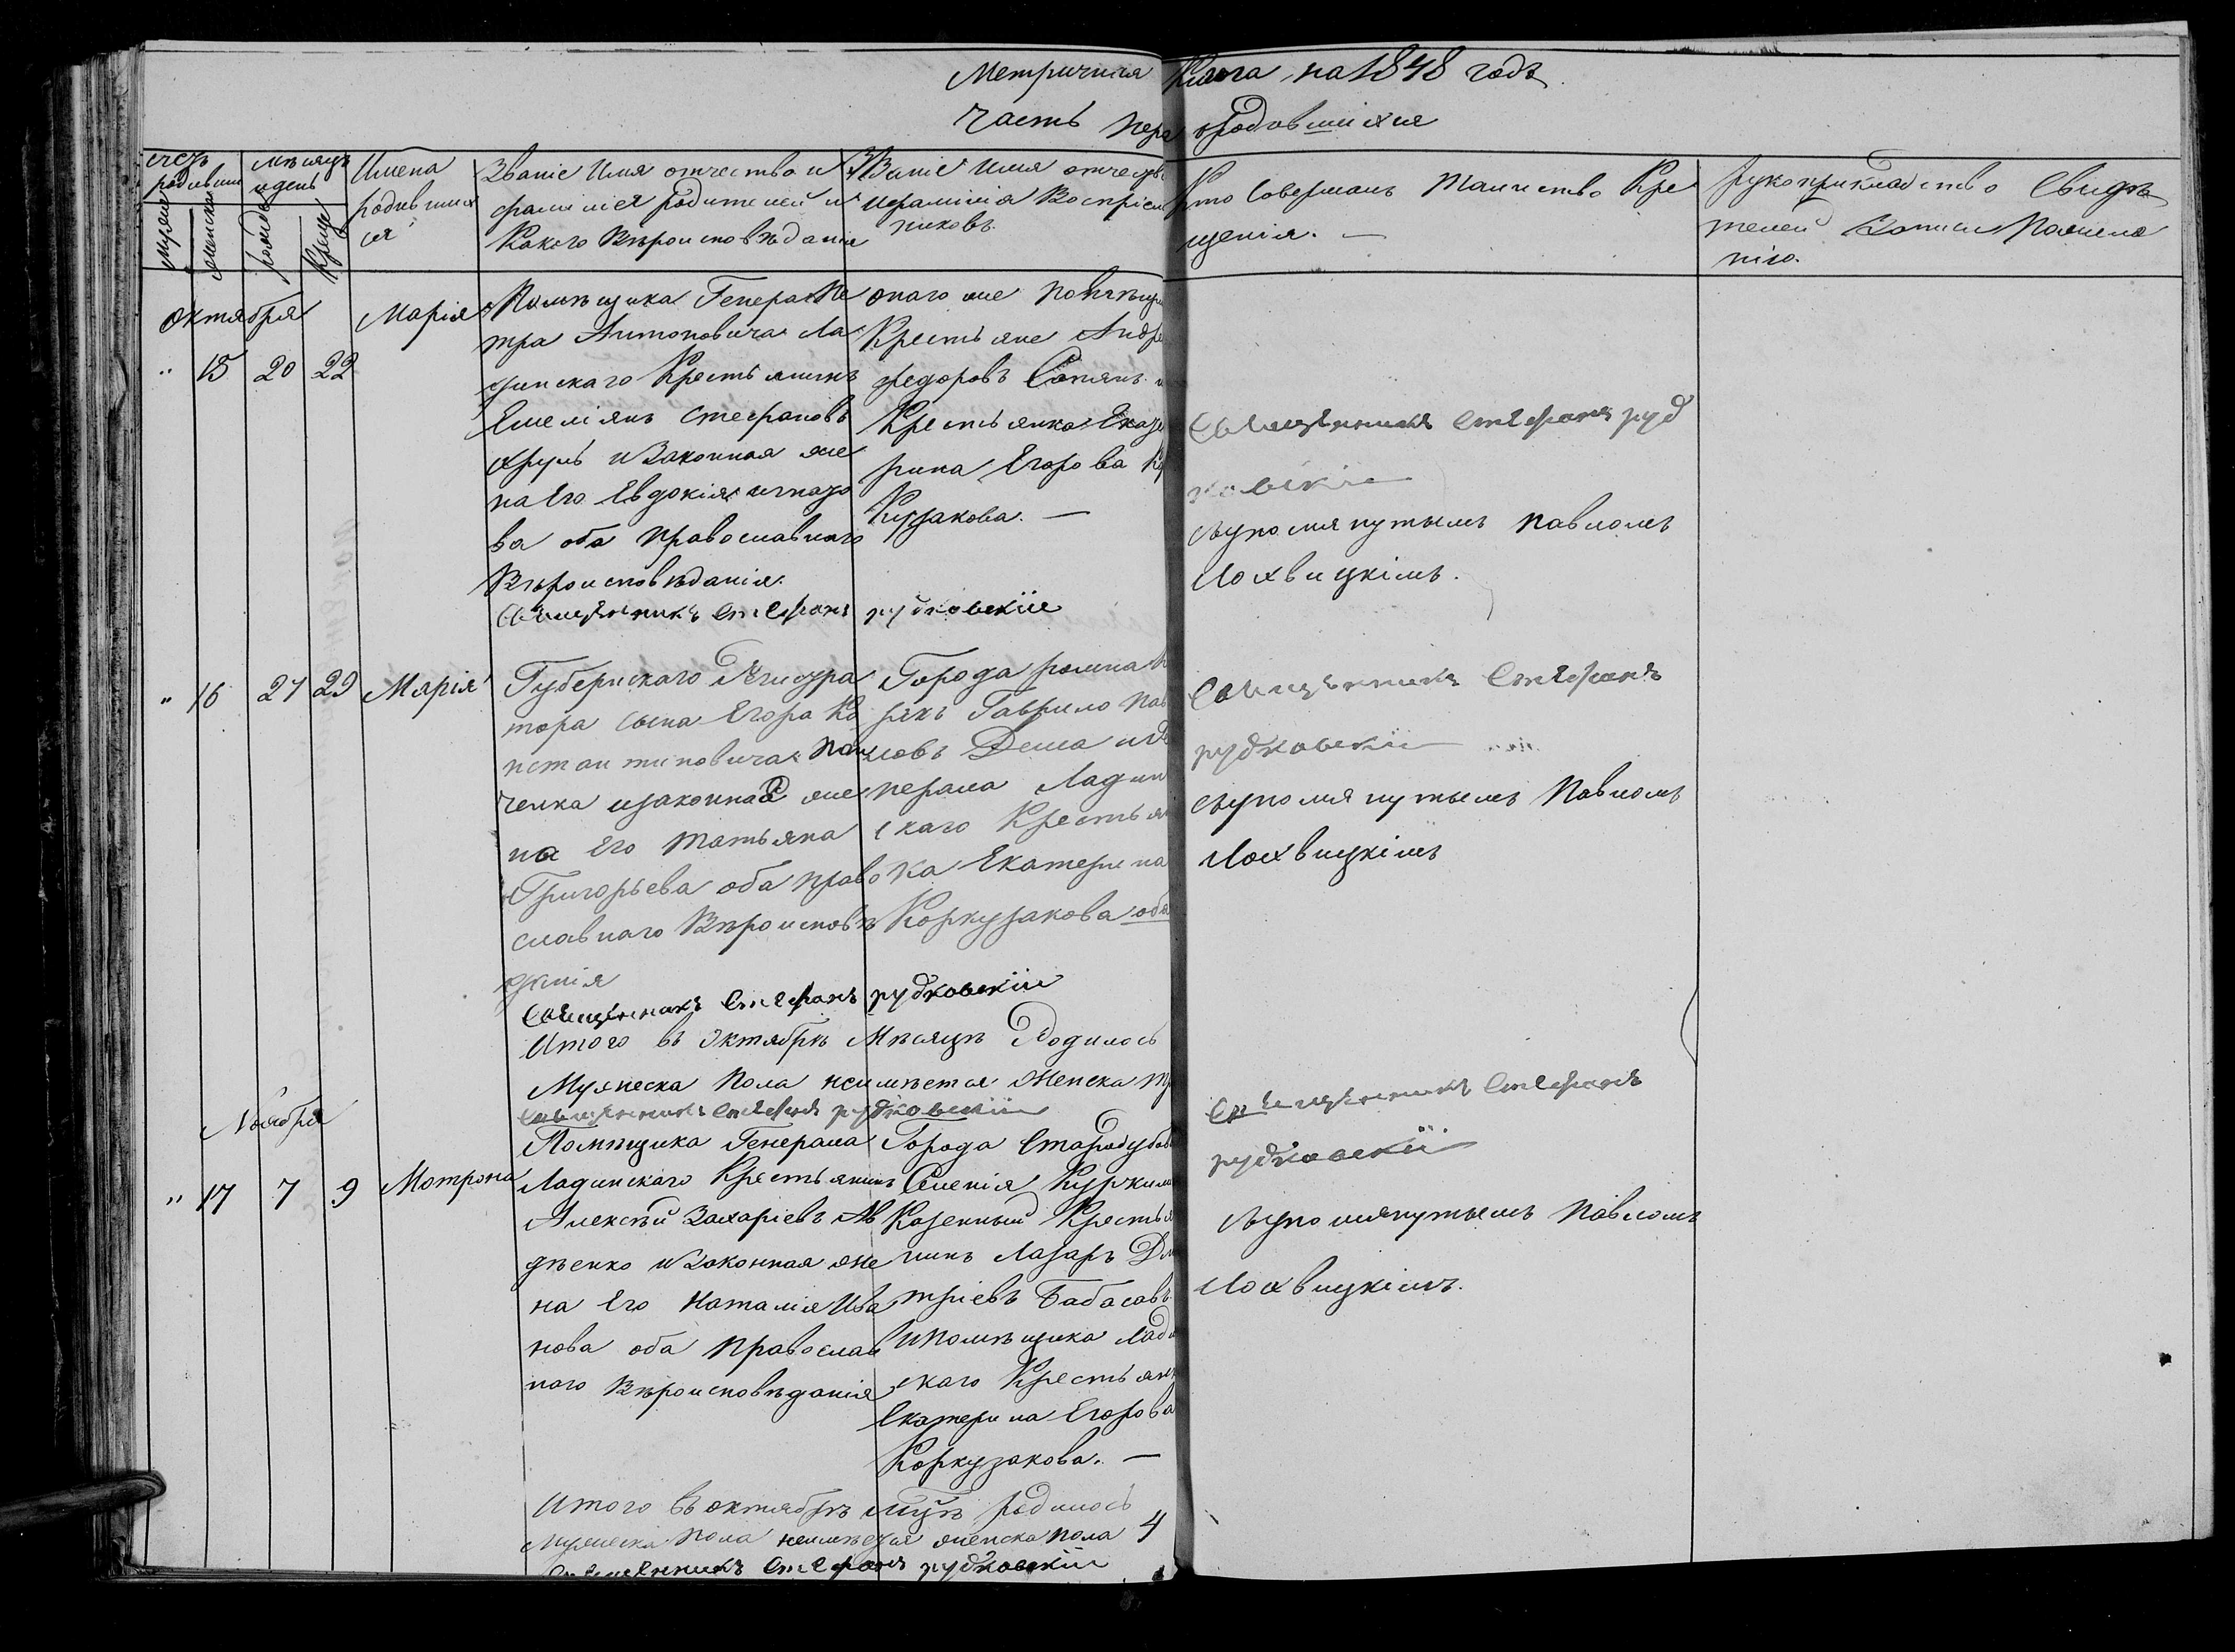 Метричная Книга, на 1848 годъ
Часть пера одовшихся
счетъ родивши
мѣсяцъ и день
мужеска
женска
рожде
Креще
Имена
родивших
ся
Званіе Имя отчество и
фамилія родителей и
Какого Вѣроисповѣданія
Званіе имя отчеств
ифамилія Воспріем
никовъ.
Кто Совершалъ Таинство Кре
щенія. —
рукоприкладство Свидѣ
телей Записи Пожела
нію.
Октября
" 15 20 22
Марія
Помѣщика Генера Пе
тра Антоновича Ла
динскаго Крестьянинъ
Емеліянъ Стефановъ
и Законная же
на Его Евдокія
ва оба православнаго
Вѣроисповѣданія.
Священникъ Стефанъ рудковскій
онаго же помѣщи
Крестьяне Андре
федоровъ
Крестьянка Екате
рина Егорова
Кузакова. —
Священникъ Стефанъ руд
ковскій
съупомянутымъ павломъ
Лохвицкимъ.
" 16 27 29 Марія
Губернскаго Регистра
тора сына Егора Ко
нстантиновича Пан
ченка изаконная же
на Его Татьяна
Григорьева оба право
славнаго Вѣроисповѣ
данія
Священникъ Стефанъ рудковскій
Города ромна
Гаврило пав
ловъ Дема иге
нерала Ладин
скаго Крестьян
ка Екатерина
Коркузакова оба
Священникъ Стефанъ
рудковскій
съупомянутымъ Павломъ
Лохвицкимъ
Итого въ Октябрѣ Мѣсяцѣ Родилось
Мужеска Пола неимѣется Женска
Священникъ Стефанъ рудковскій
Ноября
" 17 7 9 Мотрона
Помѣщика Генерала
Ладинскаго Крестьянинъ
Алексѣй Захаріевъ Ав
дѣенко и Законная же
на Его Наталія Ива
нова оба Православ
наго Вѣроисповѣданія
Города Стародубов
Селенія
Казенный Крестья
нинъ Лазаръ Дми
тріевъ Бабасавъ
ипомѣщика Лади
скаго Крестьянк
Екатерина Егорова
Коркузакова. —
Священникъ Стефанъ
рудковскій
съупомянутымъ Павломъ
Лохвицкимъ.
Итого въ октябрѣ мцѣ родилось
мужеска пола неимѣется женска пола 4
Священникъ Стефанъ рудковскій